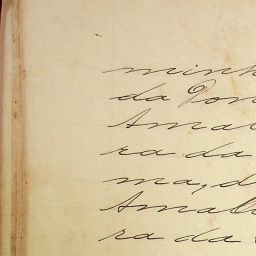 minh
da Pon
Amal
ra da
ma, d
Amali
ra da